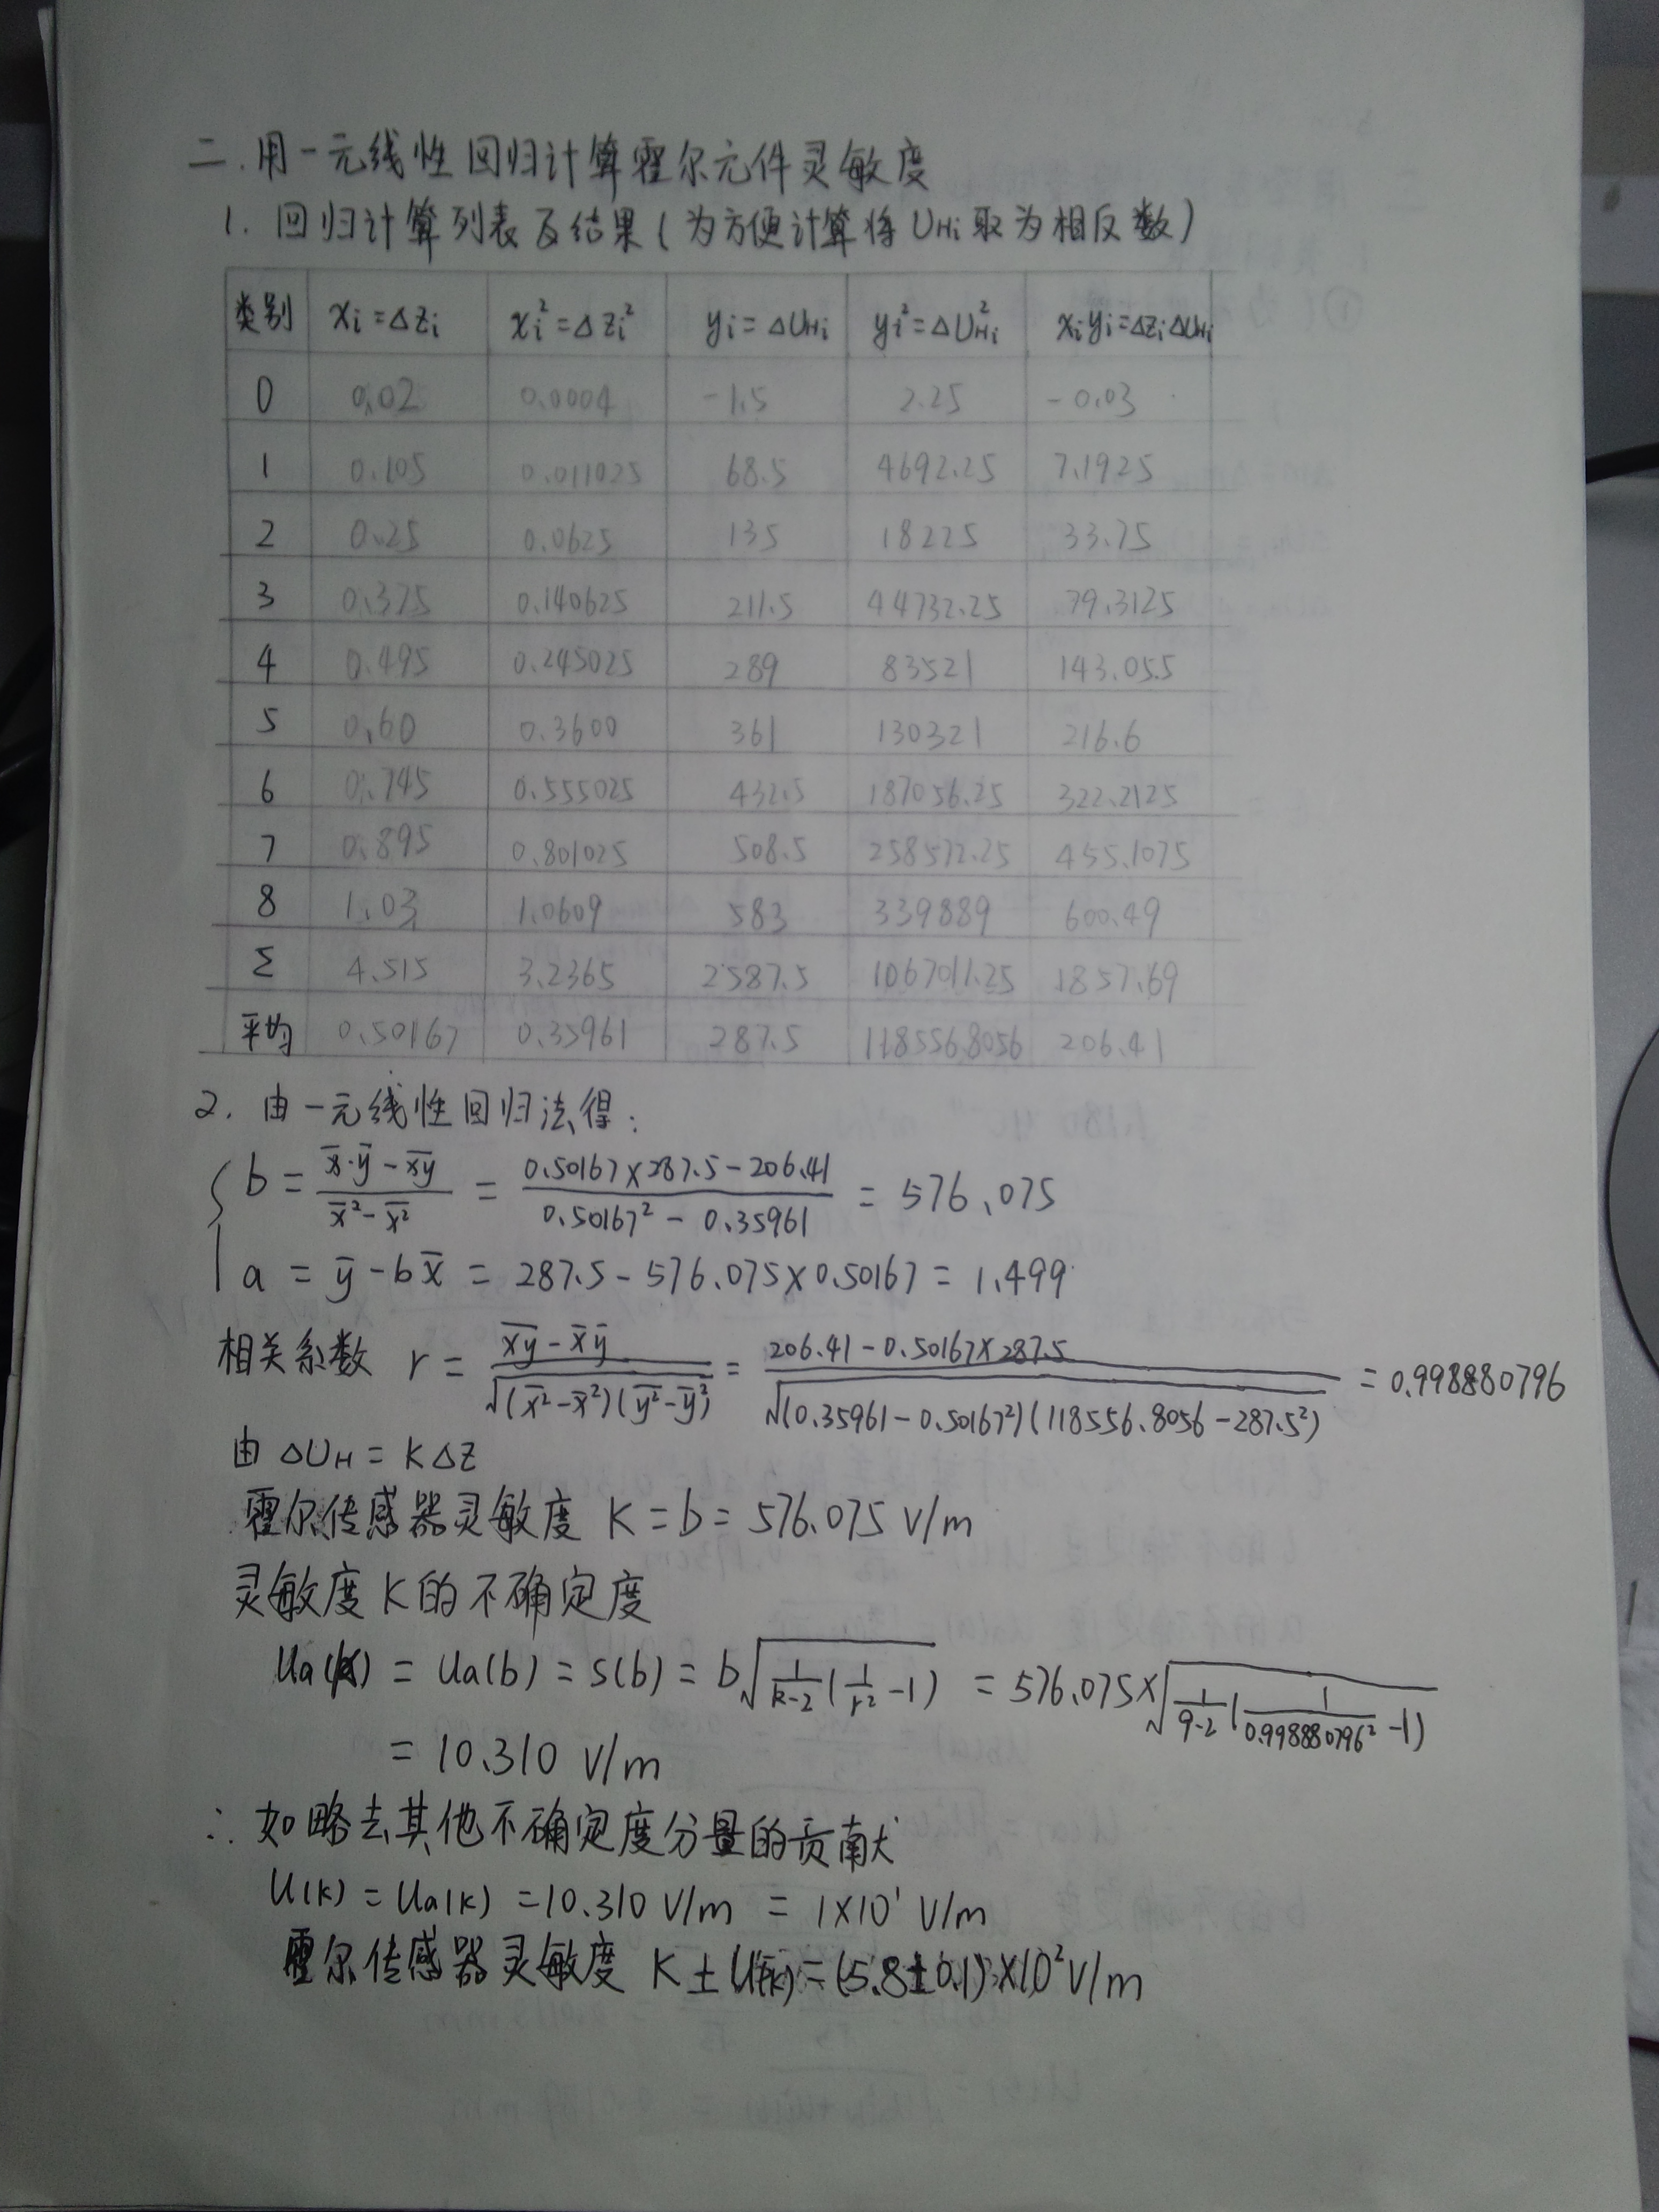 二.用一元线性回归计算霍尔元件灵敏度
1. 回归计算列表及结果(为方便计算将UHi取为相反数)
类别 xi=Δzi xi²=Δzi² yi=ΔUHi yi²=ΔUHi² xiyi=ΔziΔUHi
0 0.02 0.0004 -1.5 2.25 -0.03
1 0.105 0.011025 68.5 4692.25 7.1925
2 0.25 0.0625 135 18225 33.75
3 0.375 0.140625 211.5 44732.25 79.3125
4 0.495 0.245025 289 83521 143.055
5 0.60 0.3600 361 130321 216.6
6 0.745 0.555025 432.5 187056.25 322.2125
7 0.895 0.801025 508.5 258572.25 455.1075
8 1.03 1.0609 583 339889 600.49
Σ 4.515 3.2365 2587.5 1067011.25 1857.69
平均 0.50167 0.35961 287.5 118556.8056 206.41
2. 由一元线性回归法得:
b = (x̄·ȳ - x̅y̅)/(x̄² - x̅²) = (0.50167×287.5-206.41)/(0.50167² - 0.35961) = 576.075
a = ȳ - bx̄ = 287.5 - 576.075×0.50167 = 1.499
相关系数 r = (x̅y̅ - x̄ȳ)/√((x̅²-x̄²)(y̅²-ȳ²)) = (206.41-0.50167×287.5)/√((0.35961-0.50167²)(118556.8056-287.5²)) = 0.998880796
由 ΔUH = KΔZ
霍尔传感器灵敏度 K = b = 576.075 V/m
灵敏度K的不确定度
Ua(K) = Ua(b) = s(b) = b√(1/(k-2)(1/r²-1)) = 576.075×√(1/(9-2)(1/0.998880796²-1))
= 10.310 V/m
∴ 如略去其他不确定度分量的贡献
U(K) = Ua(K) = 10.310 V/m = 1×10¹ V/m
霍尔传感器灵敏度 K±U(K) = (5.8±0.1)×10²V/m